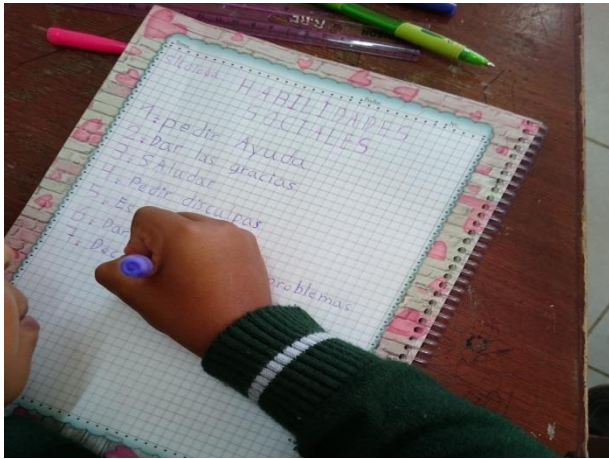 HABILIDADES
SOCIALES
1= pedir Ayuda
2= Dar las gracias
3= SAludar
4= Pedir disculpas
5= Es
6= Dar
7= Des problemas